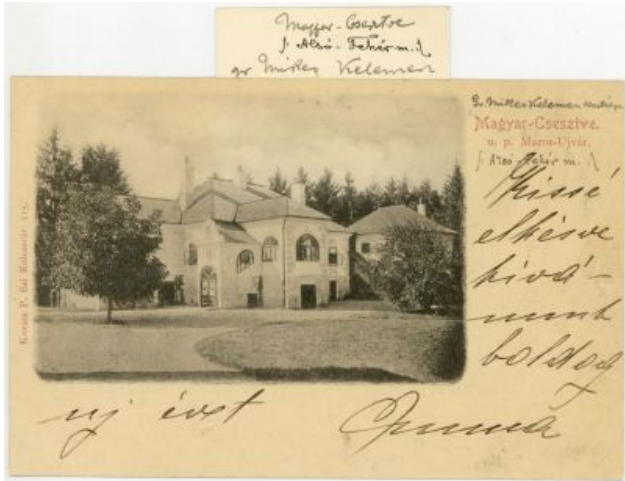 Magyar-Csesztve
/: Alsó-Fehér m. :/
gr Mikes Kelemen
Gr. Mikes Kelemen
Magyar-Csesztve.
u. p. Maros-Ujvár.
/: Alsó-Fehér m. :/
Kissé
elkésve
kivá-
nunk
boldog
uj évet
Kováts P. fiai Kolozsvár 115.